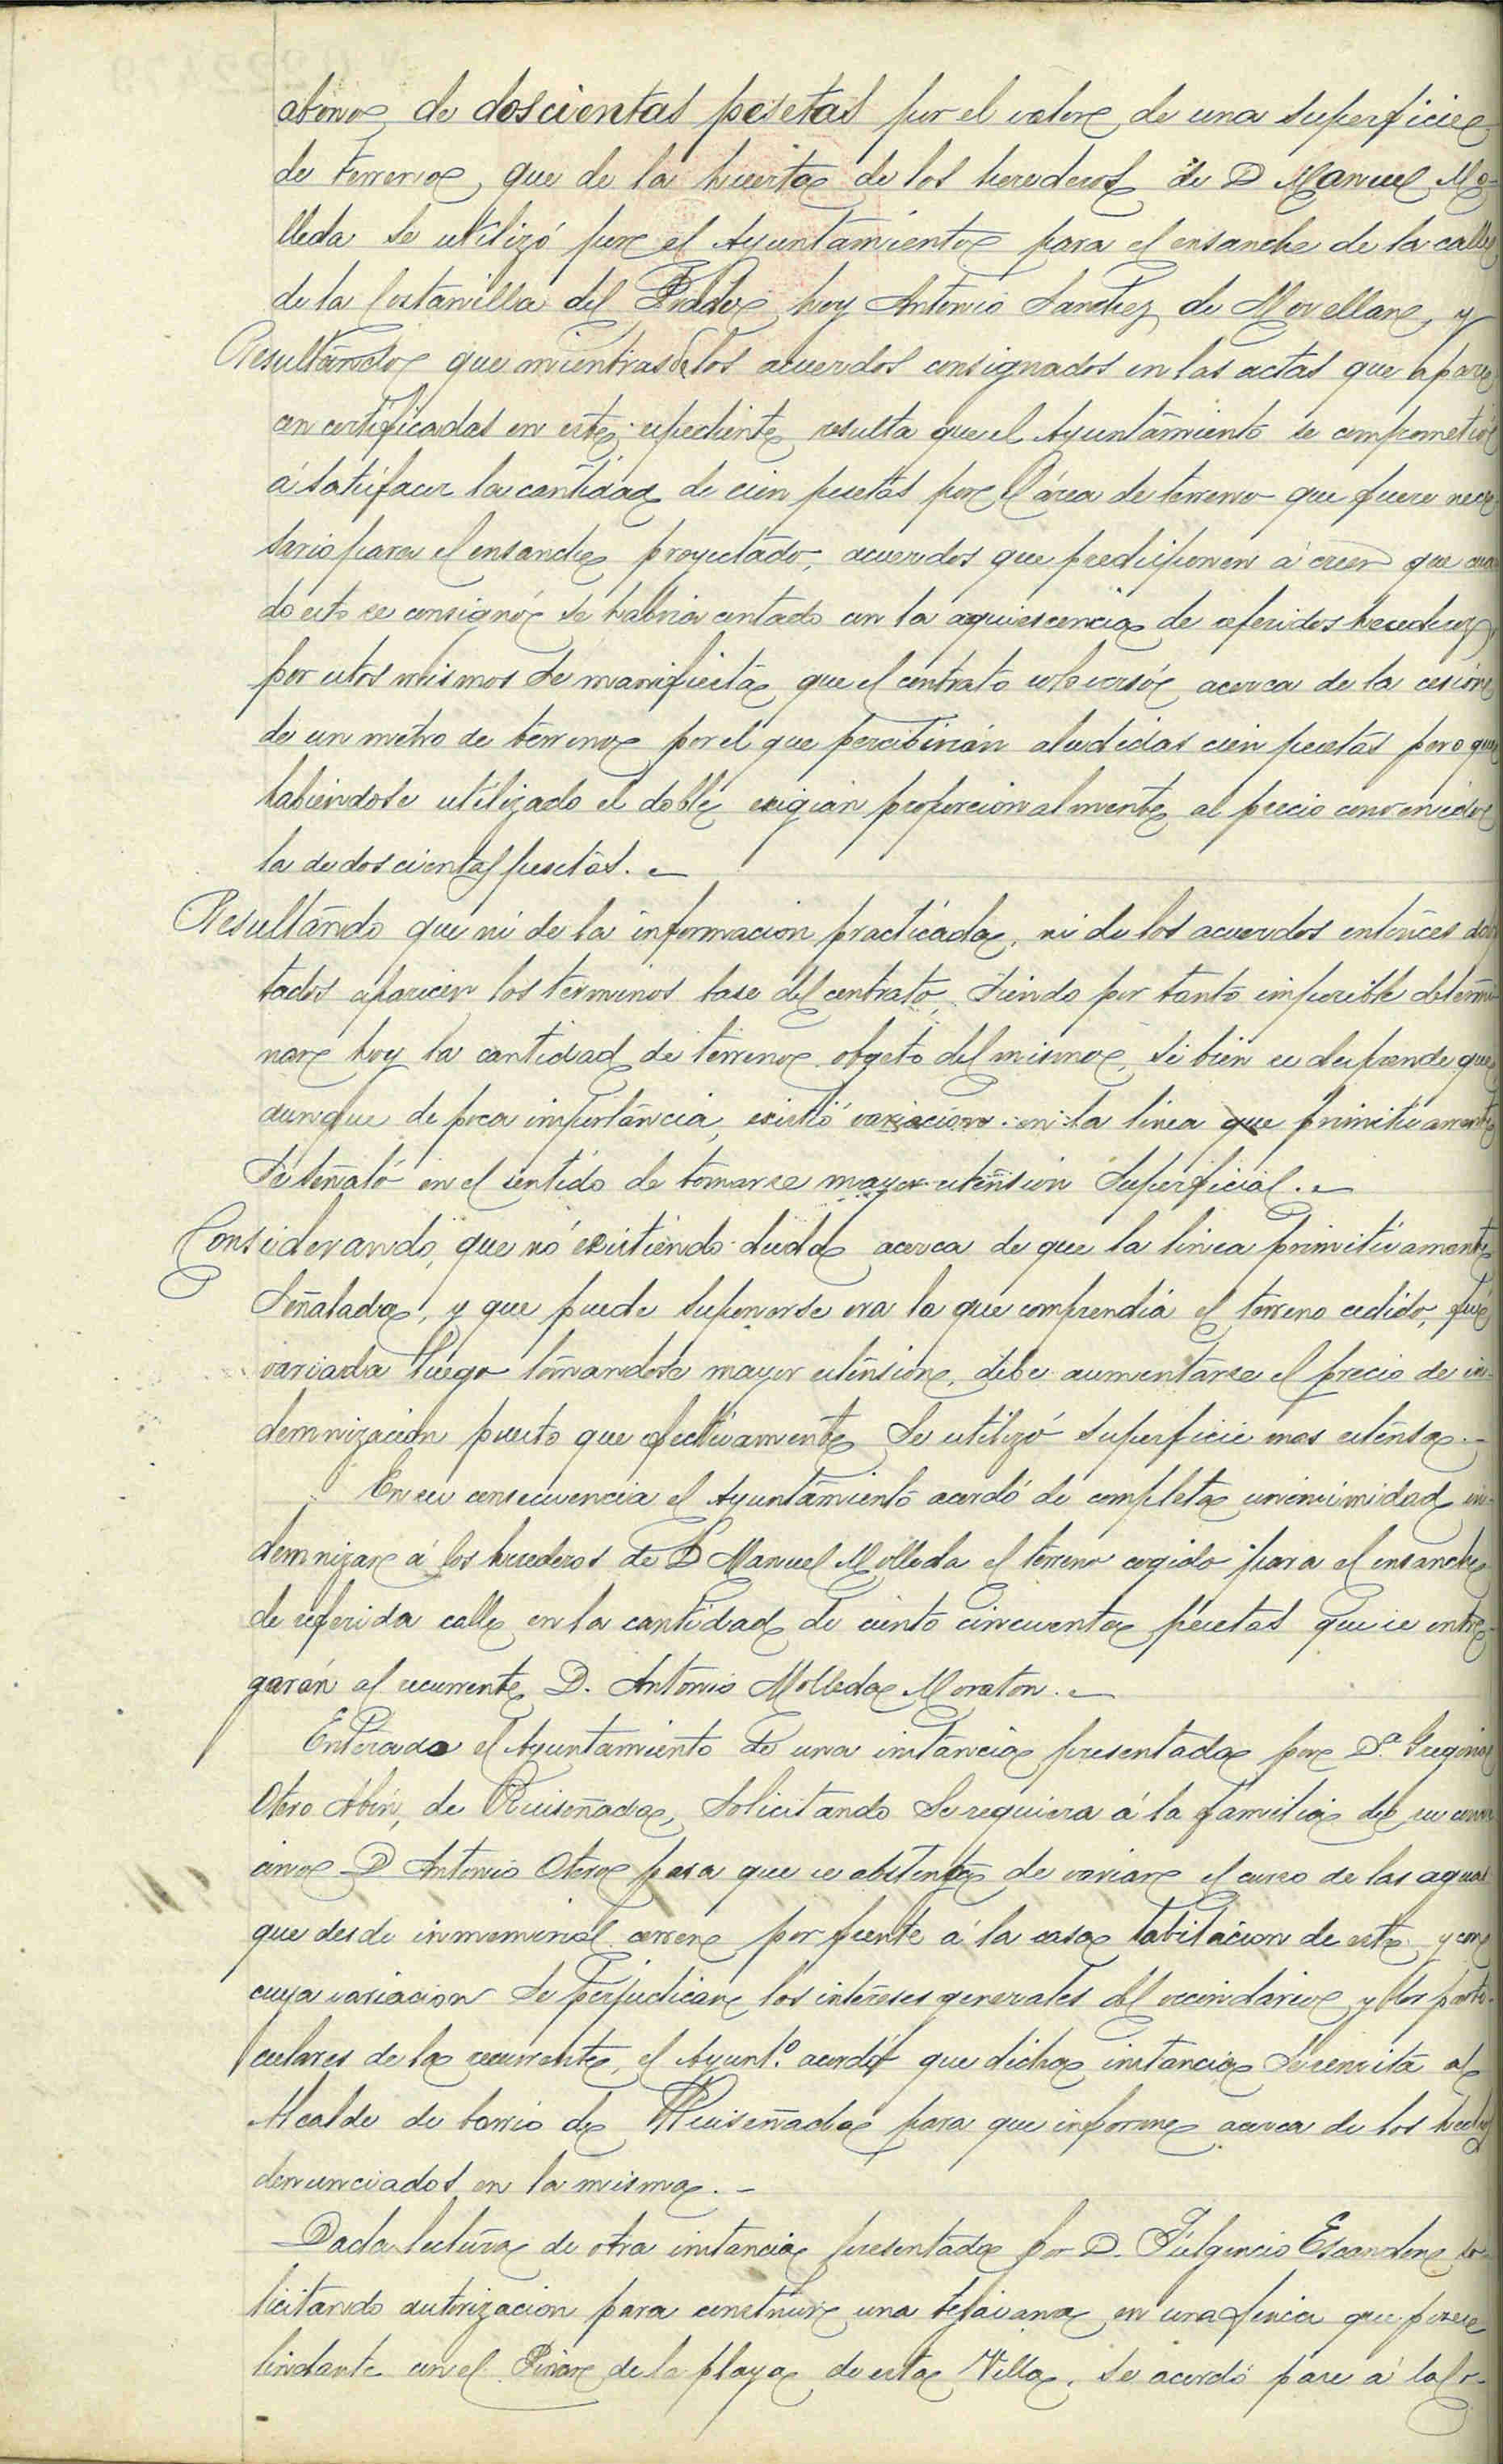 abono de doscientas pesetas por el valor de una superficie
de terreno, que de la huerta de los herederos de D Manuel Mo-
lleda se utilizó por el Ayuntamiento para el ensanche de la calle
de la Costanilla del hoy Antonio Sanchez de Movellan, y
Resultando que mientras de los acuerdos consignados en las actas que apare
cen certificadas en este expediente, resulta que el Ayuntamiento se comprometió
á satisfacer la cantidad de cien pesetas por el área de terreno que fuere nece
sario para el ensanche proyectado, acuerdos que predisponen á creer que cuan
do esto se consignó se habria contado con la aquiescencia de referidos herederos,
por estos mismos se manifiesta que el contrato solo versó acerca de la cesión
de un metro de terreno por el que percibirián aludidas cien pesetas pero que
habiendose utilizado el doble exigian proporcionalmente al precio convenido
la de doscientas pesetas.
Resultando que ni de la informacion practicada, ni de los acuerdos entonces adop
tados aparecen los terminos base del contrato, siendo por tanto imposible determi-
nar hoy la cantidad de terreno objeto del mismo, si bien se desprende que
aunque de poca importancia, existió variacion en la linea que primitivamente
se señaló en el sentido de tomarse mayor extension superficial.
Considerando, que nó existiendo duda acerca de que la linea primitivamente
señalada, y que puede suponerse era la que comprendia el terreno cedido, fué
variada luego tomandose mayor extension, debe aumentarse el precio de in-
demnizacion puesto que efectivamente se utilizó superficie mas extensa.
En su consecuencia el Ayuntamiento acordó de completa unanimidad in-
demnizar á los herederos de D Manuel Molleda el terreno cogido para el ensanche
de referida calle en la cantidad de ciento cincuenta pesetas que se entre-
garán al recurrente D. Antonio Molleda Moraton.
Enterado el Ayuntamiento de una instancia presentada por Dª
Otero de Ruiseñada, solicitando se requiera á la familia de su conve
cino D Antonio Otero para que se abstenga de variar el curso de las aguas
que desde inmemorial corren por frente á la casa habitacion de este y con
cuya variacion se perjudican los intereses generales del vecindario y los parti-
culares de la recurrente, el Ayuntº acordó que dicha instancia se remita al
Alcalde de barrio de Ruiseñada para que informe acerca de los hechos
denunciados en la misma.
Dada lectura de otra instancia presentada por D. Fulgencio Escandon so-
licitando autorizacion para construir una tejavana en una finca que posee
lindante con el Pinar de la playa de esta Villa, se acordó pase á la Co-